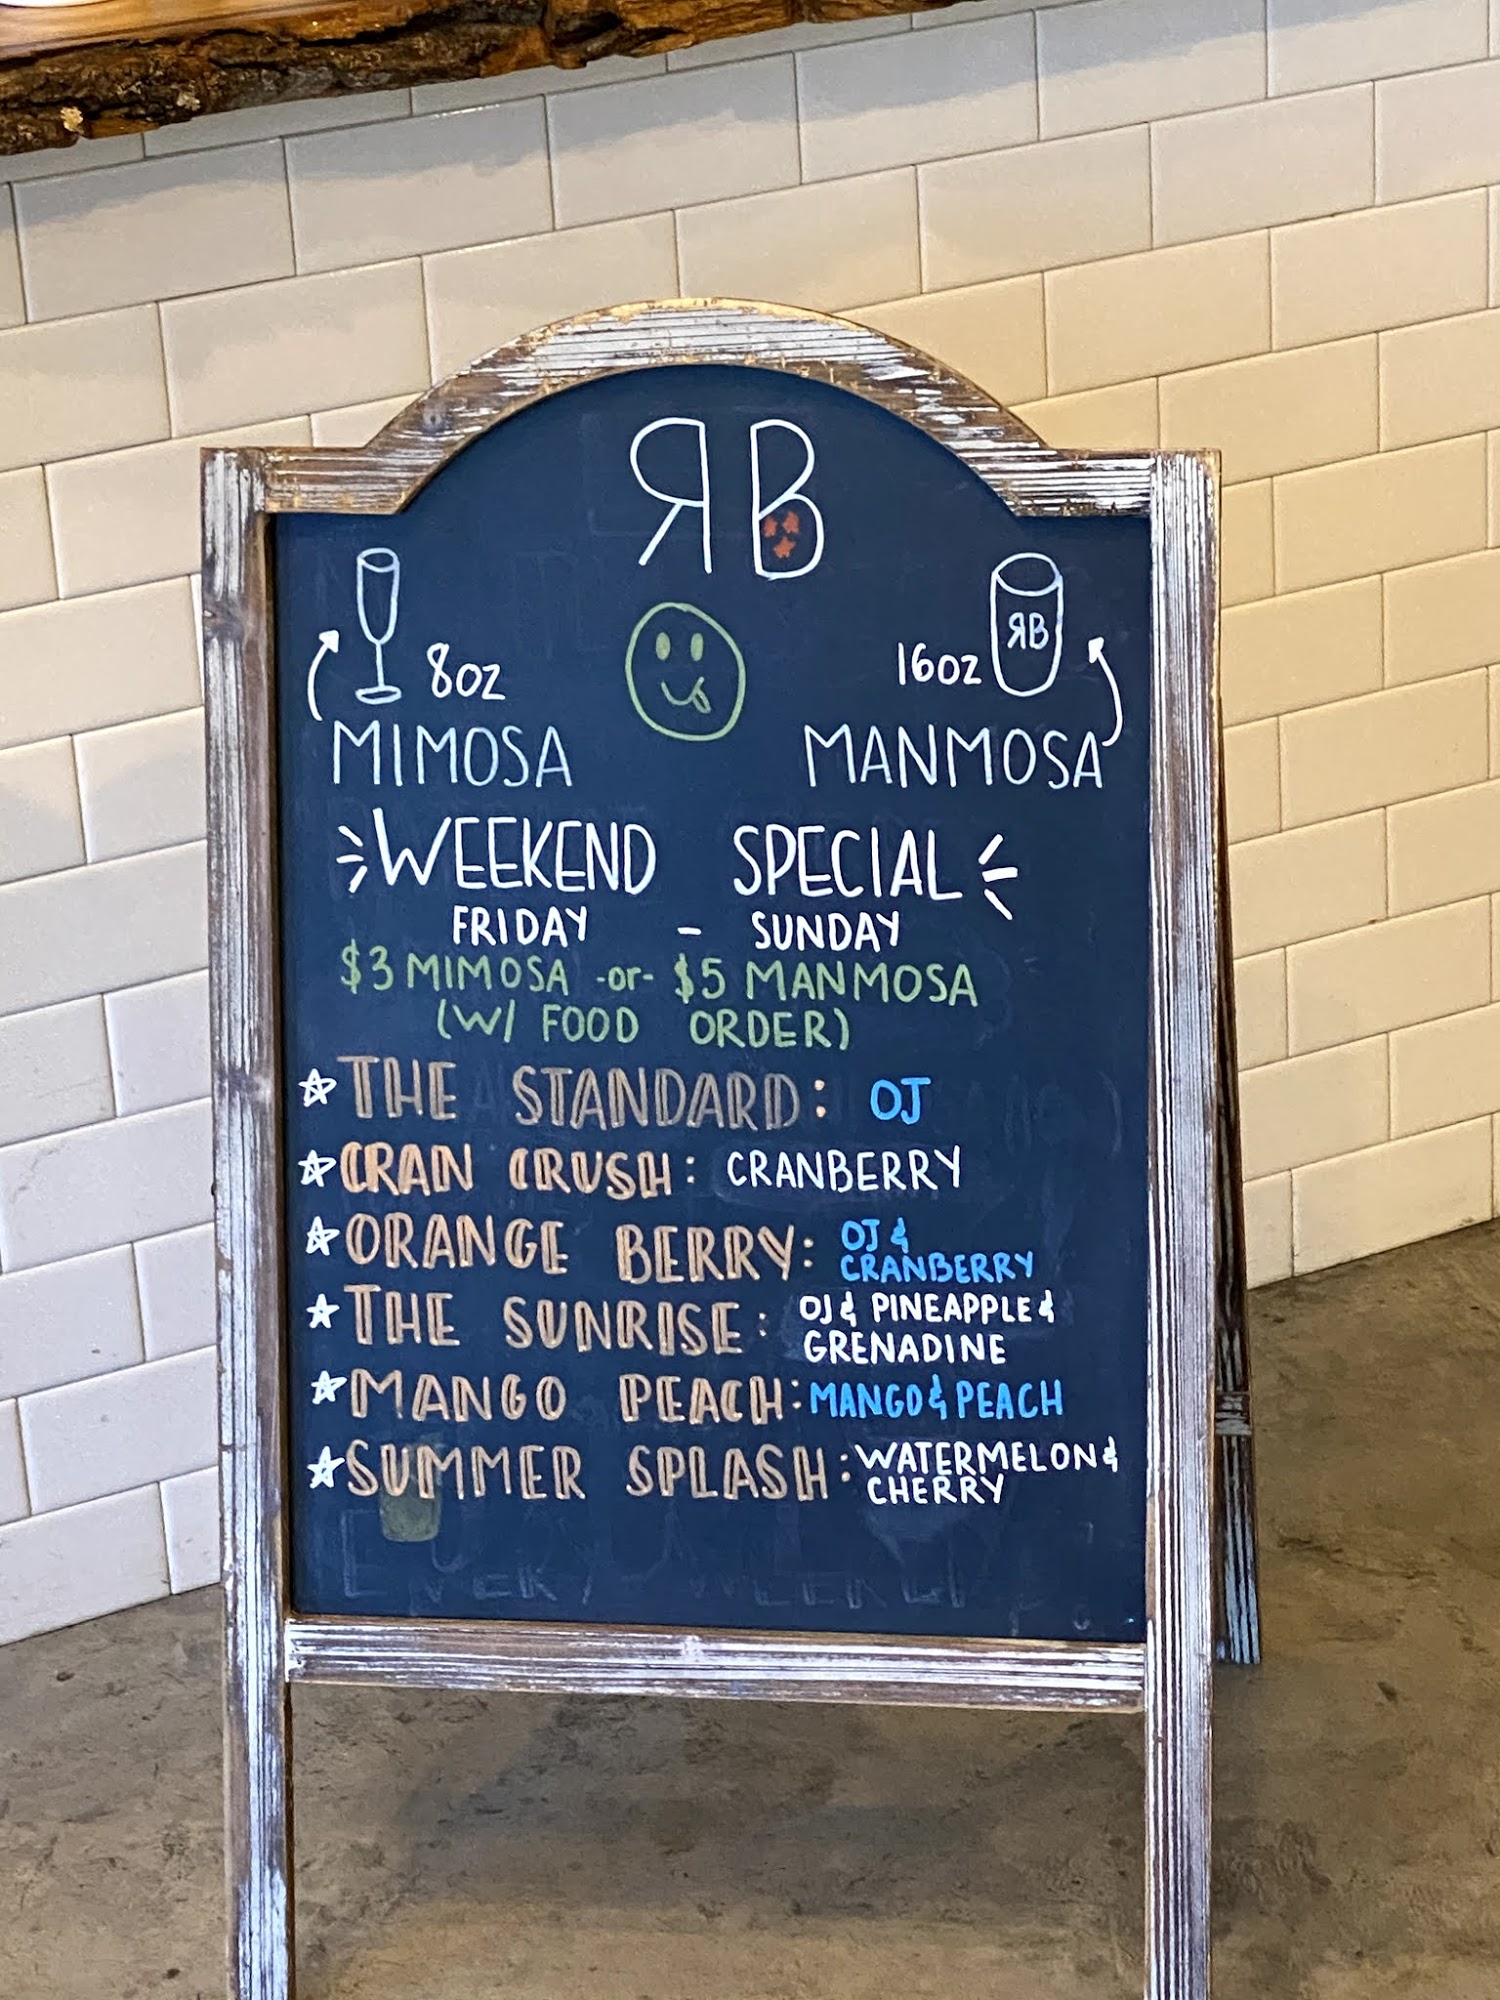 RB
8oz
16oz
RB
MIMOSA
MANMOSA
WEEKEND SPECIAL
FRIDAY - SUNDAY
$3 MIMOSA -or- $5 MANMOSA
(W/ FOOD ORDER)
THE STANDARD: OJ
CRAN CRUSH: CRANBERRY
ORANGE BERRY: OJ &
CRANBERRY
THE SUNRISE: OJ & PINEAPPLE &
GRENADINE
MANGO PEACH: MANGO & PEACH
SUMMER SPLASH: WATERMELON &
CHERRY